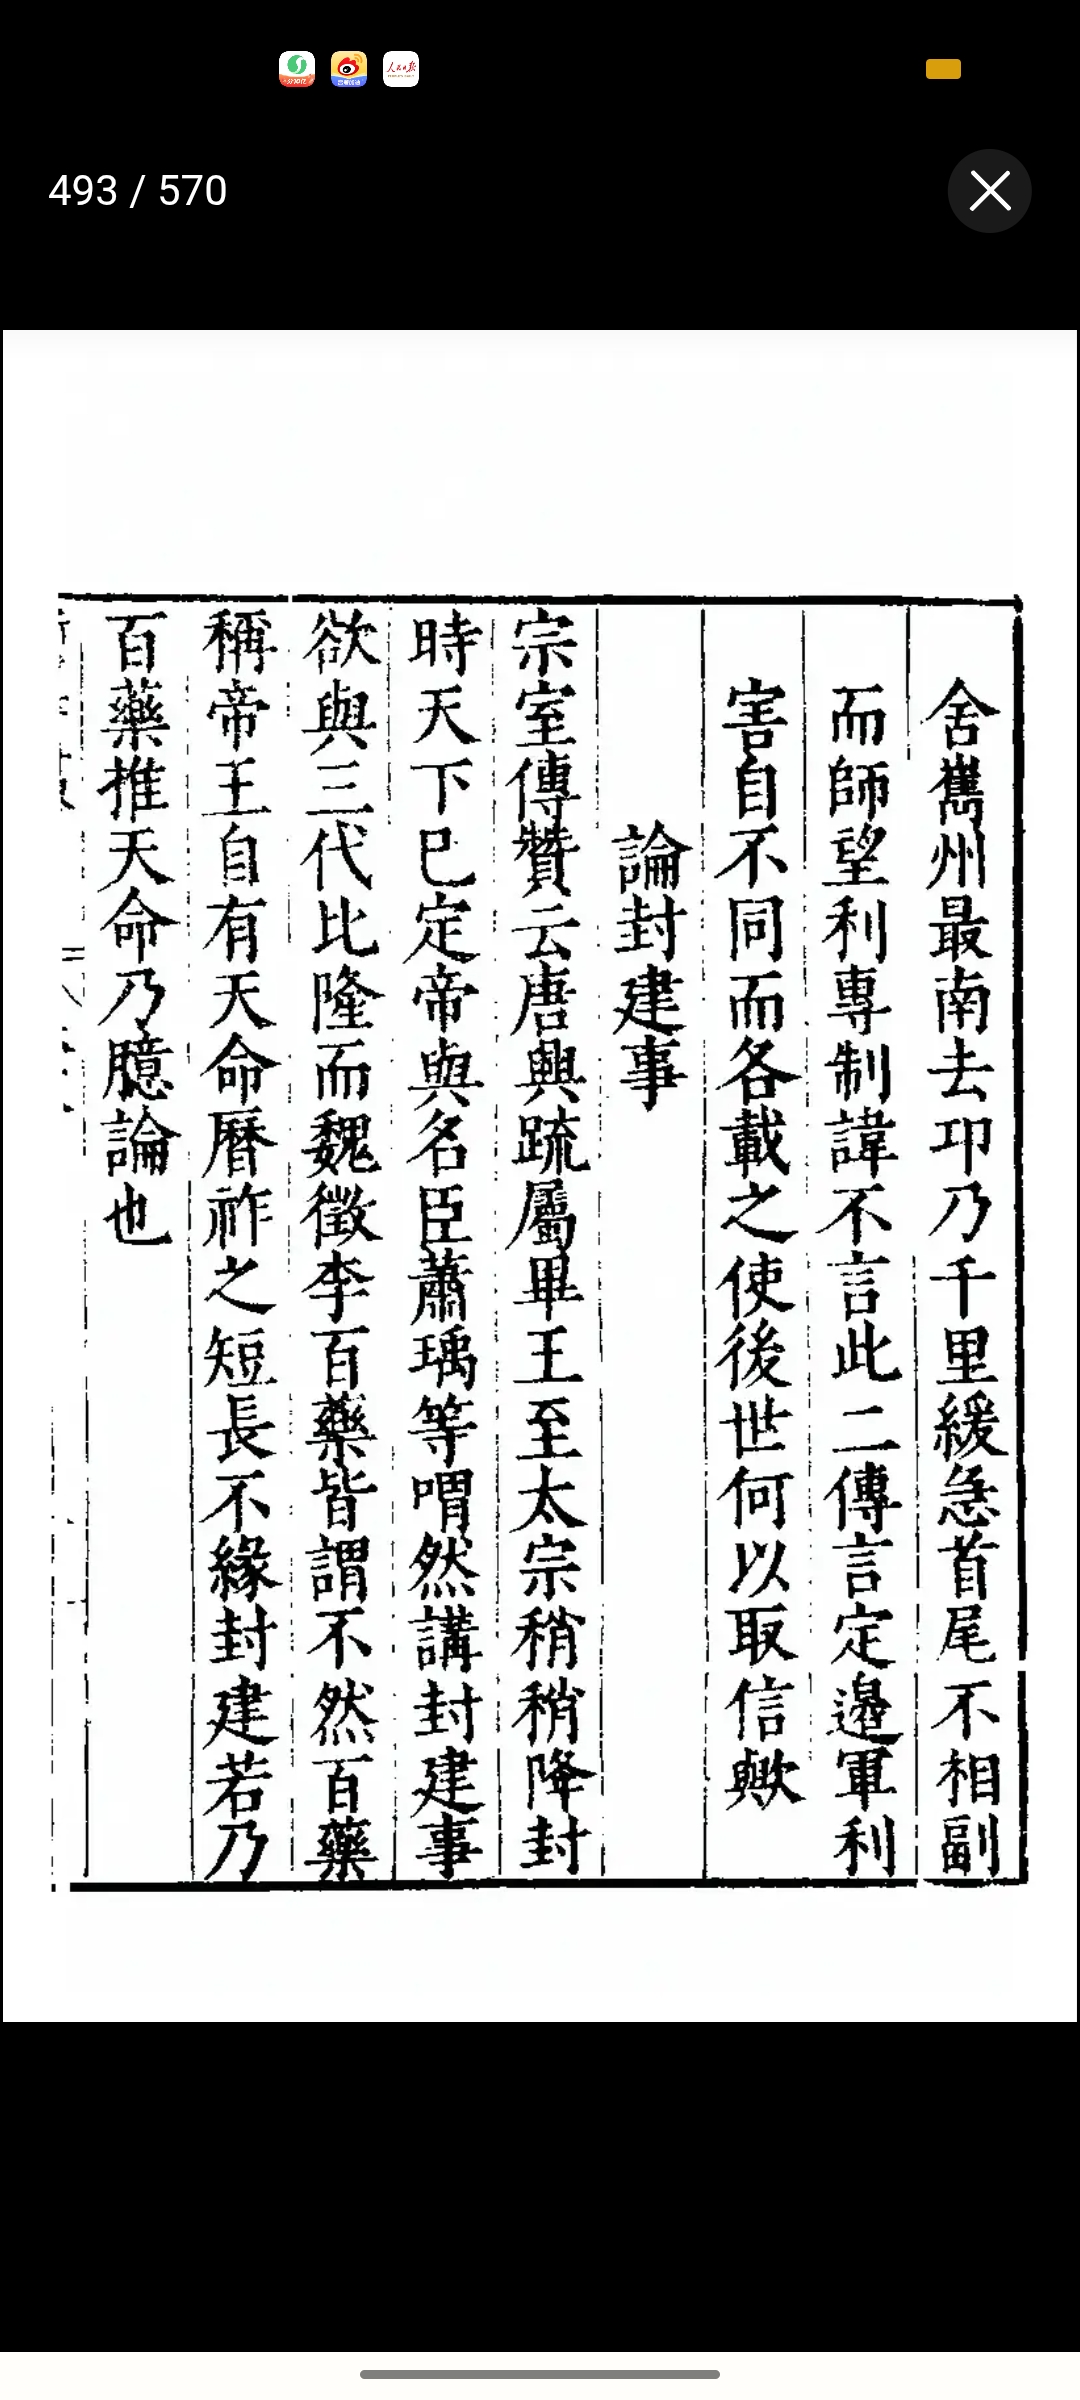 493 / 570
舍雟州最南去卭乃千里緩急首尾不相副
而師望利專制諱不言此二傳言定邊軍利
害自不同而各載之使後世何以取信歟
論封建事
宗室傳贊云唐興疏屬畢王至太宗稍稍降封
時天下已定帝與名臣蕭瑀等喟然講封建事
欲與三代比隆而魏徵李百藥皆謂不然百藥
稱帝王自有天命曆祚之短長不緣封建若乃
百藥推天命乃臆論也